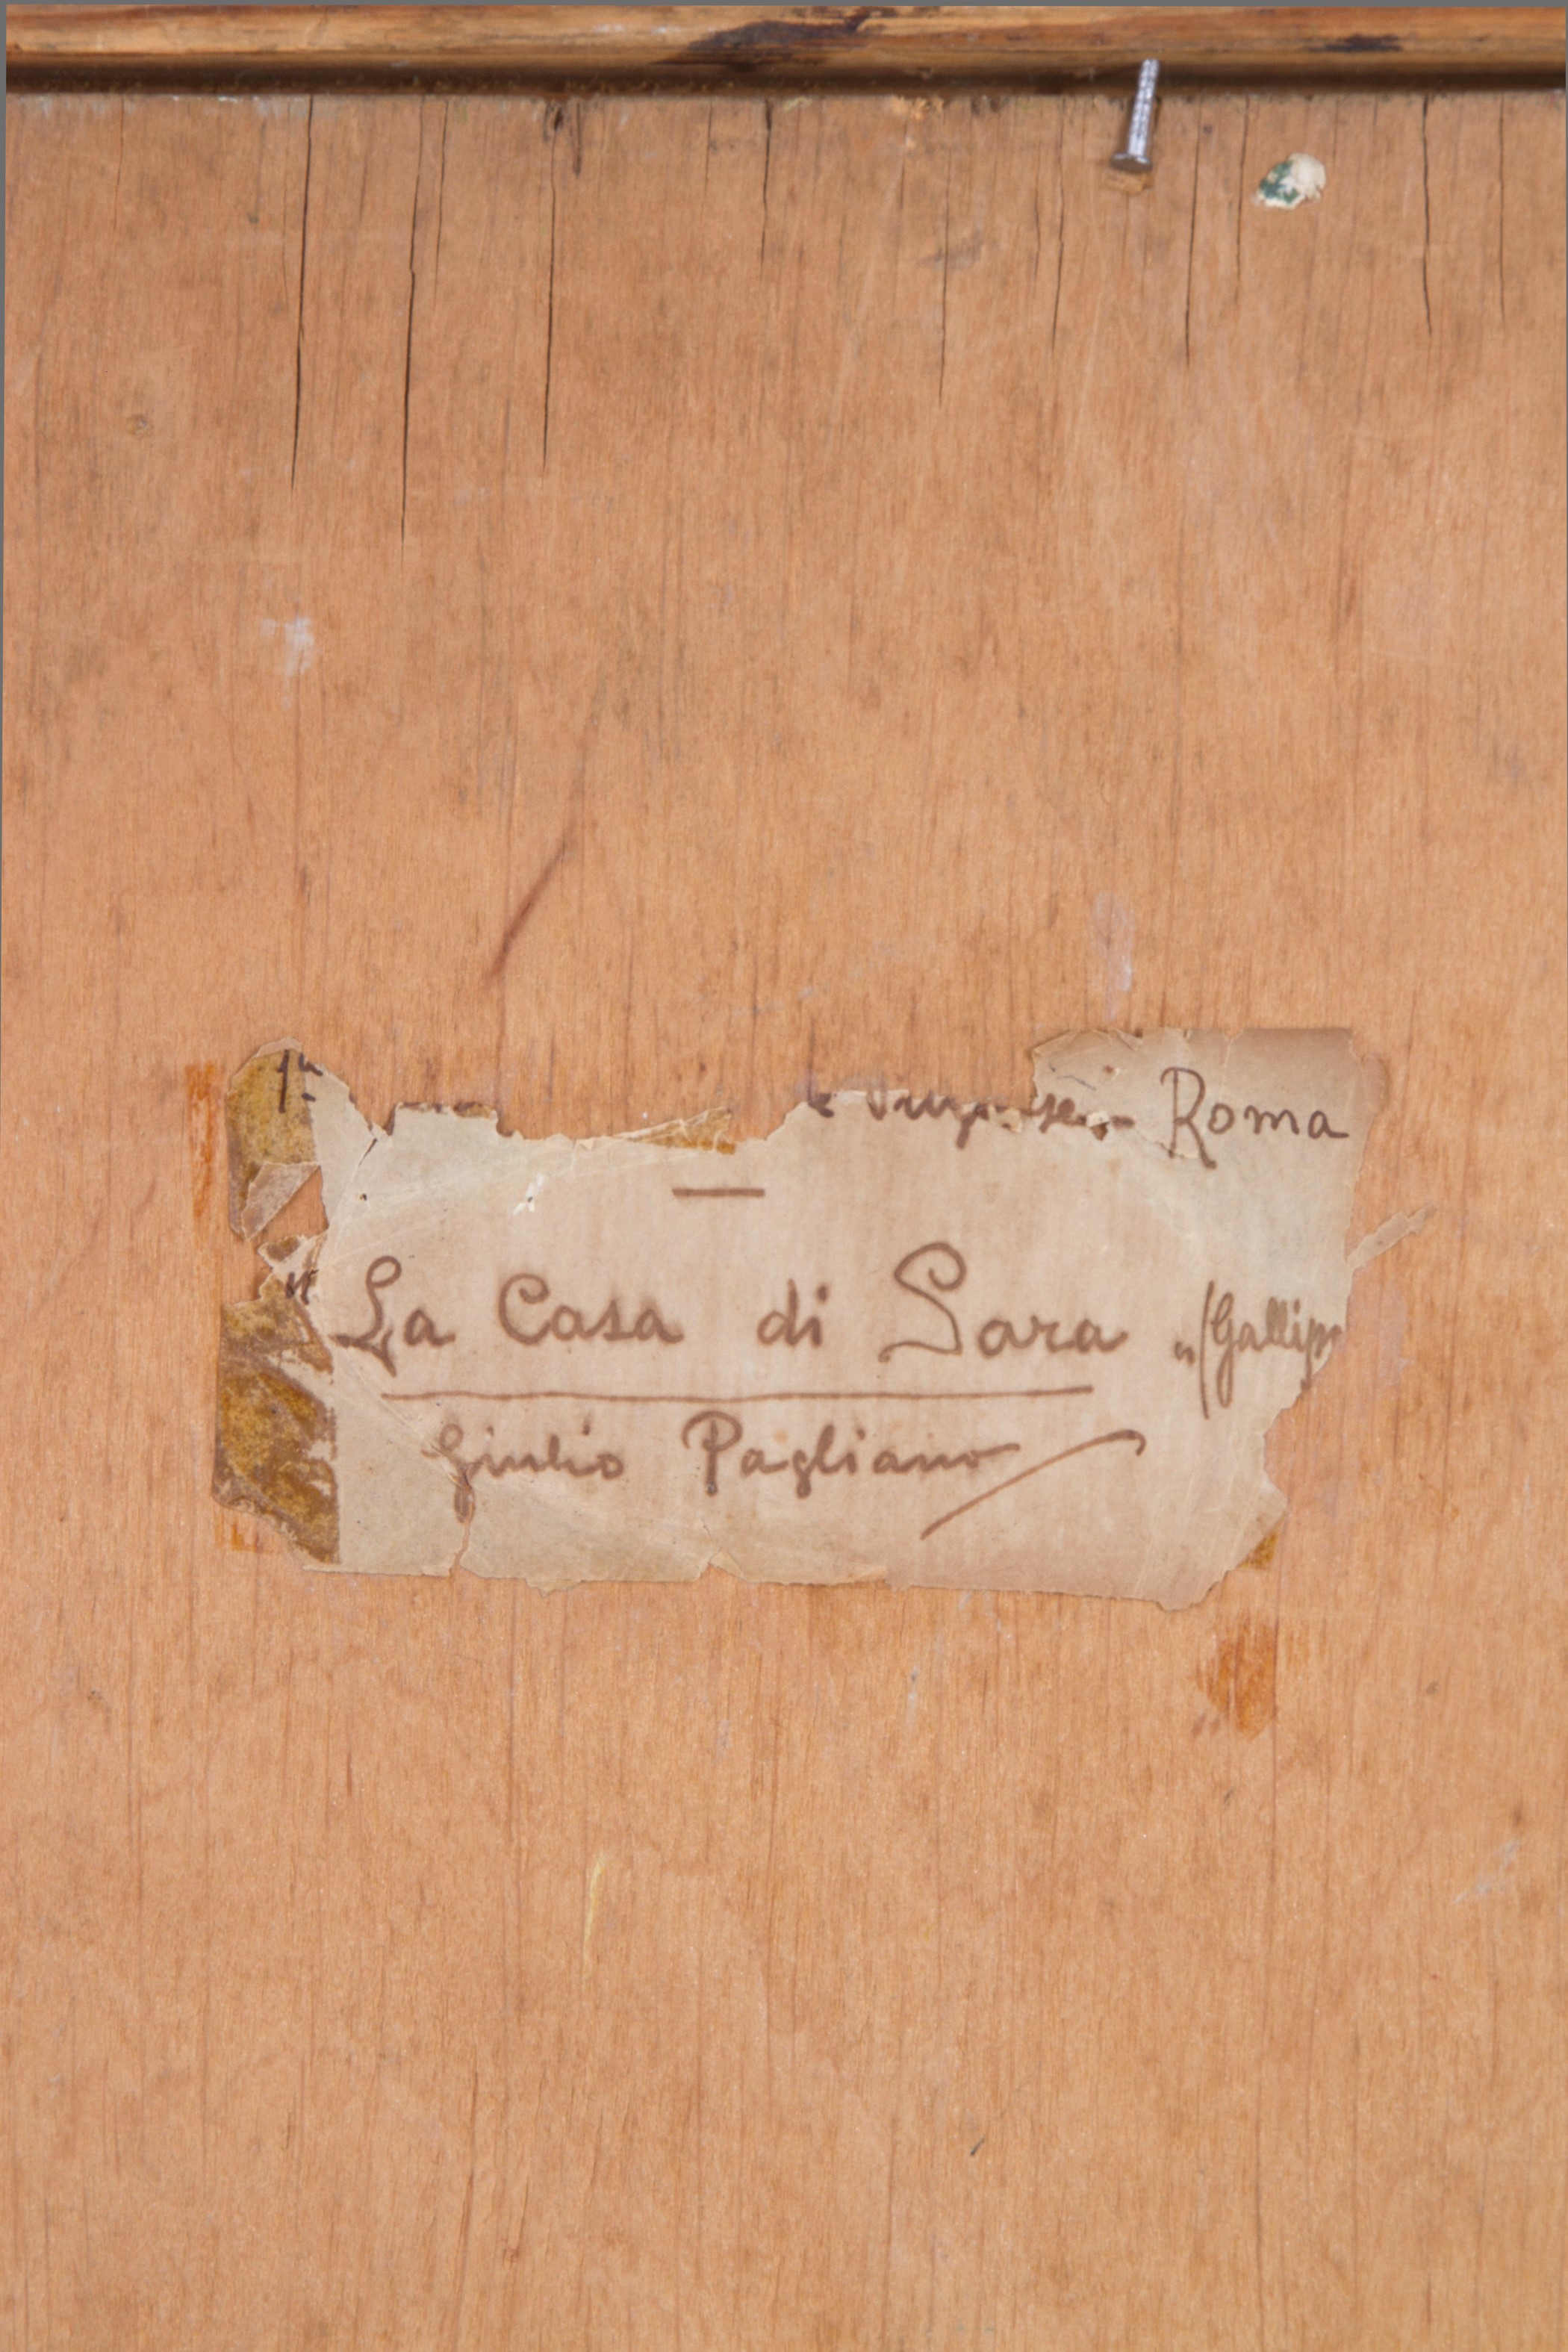 1ª Roma
—
" La Casa di Sara „ (Gallip
Giulio Pagliano